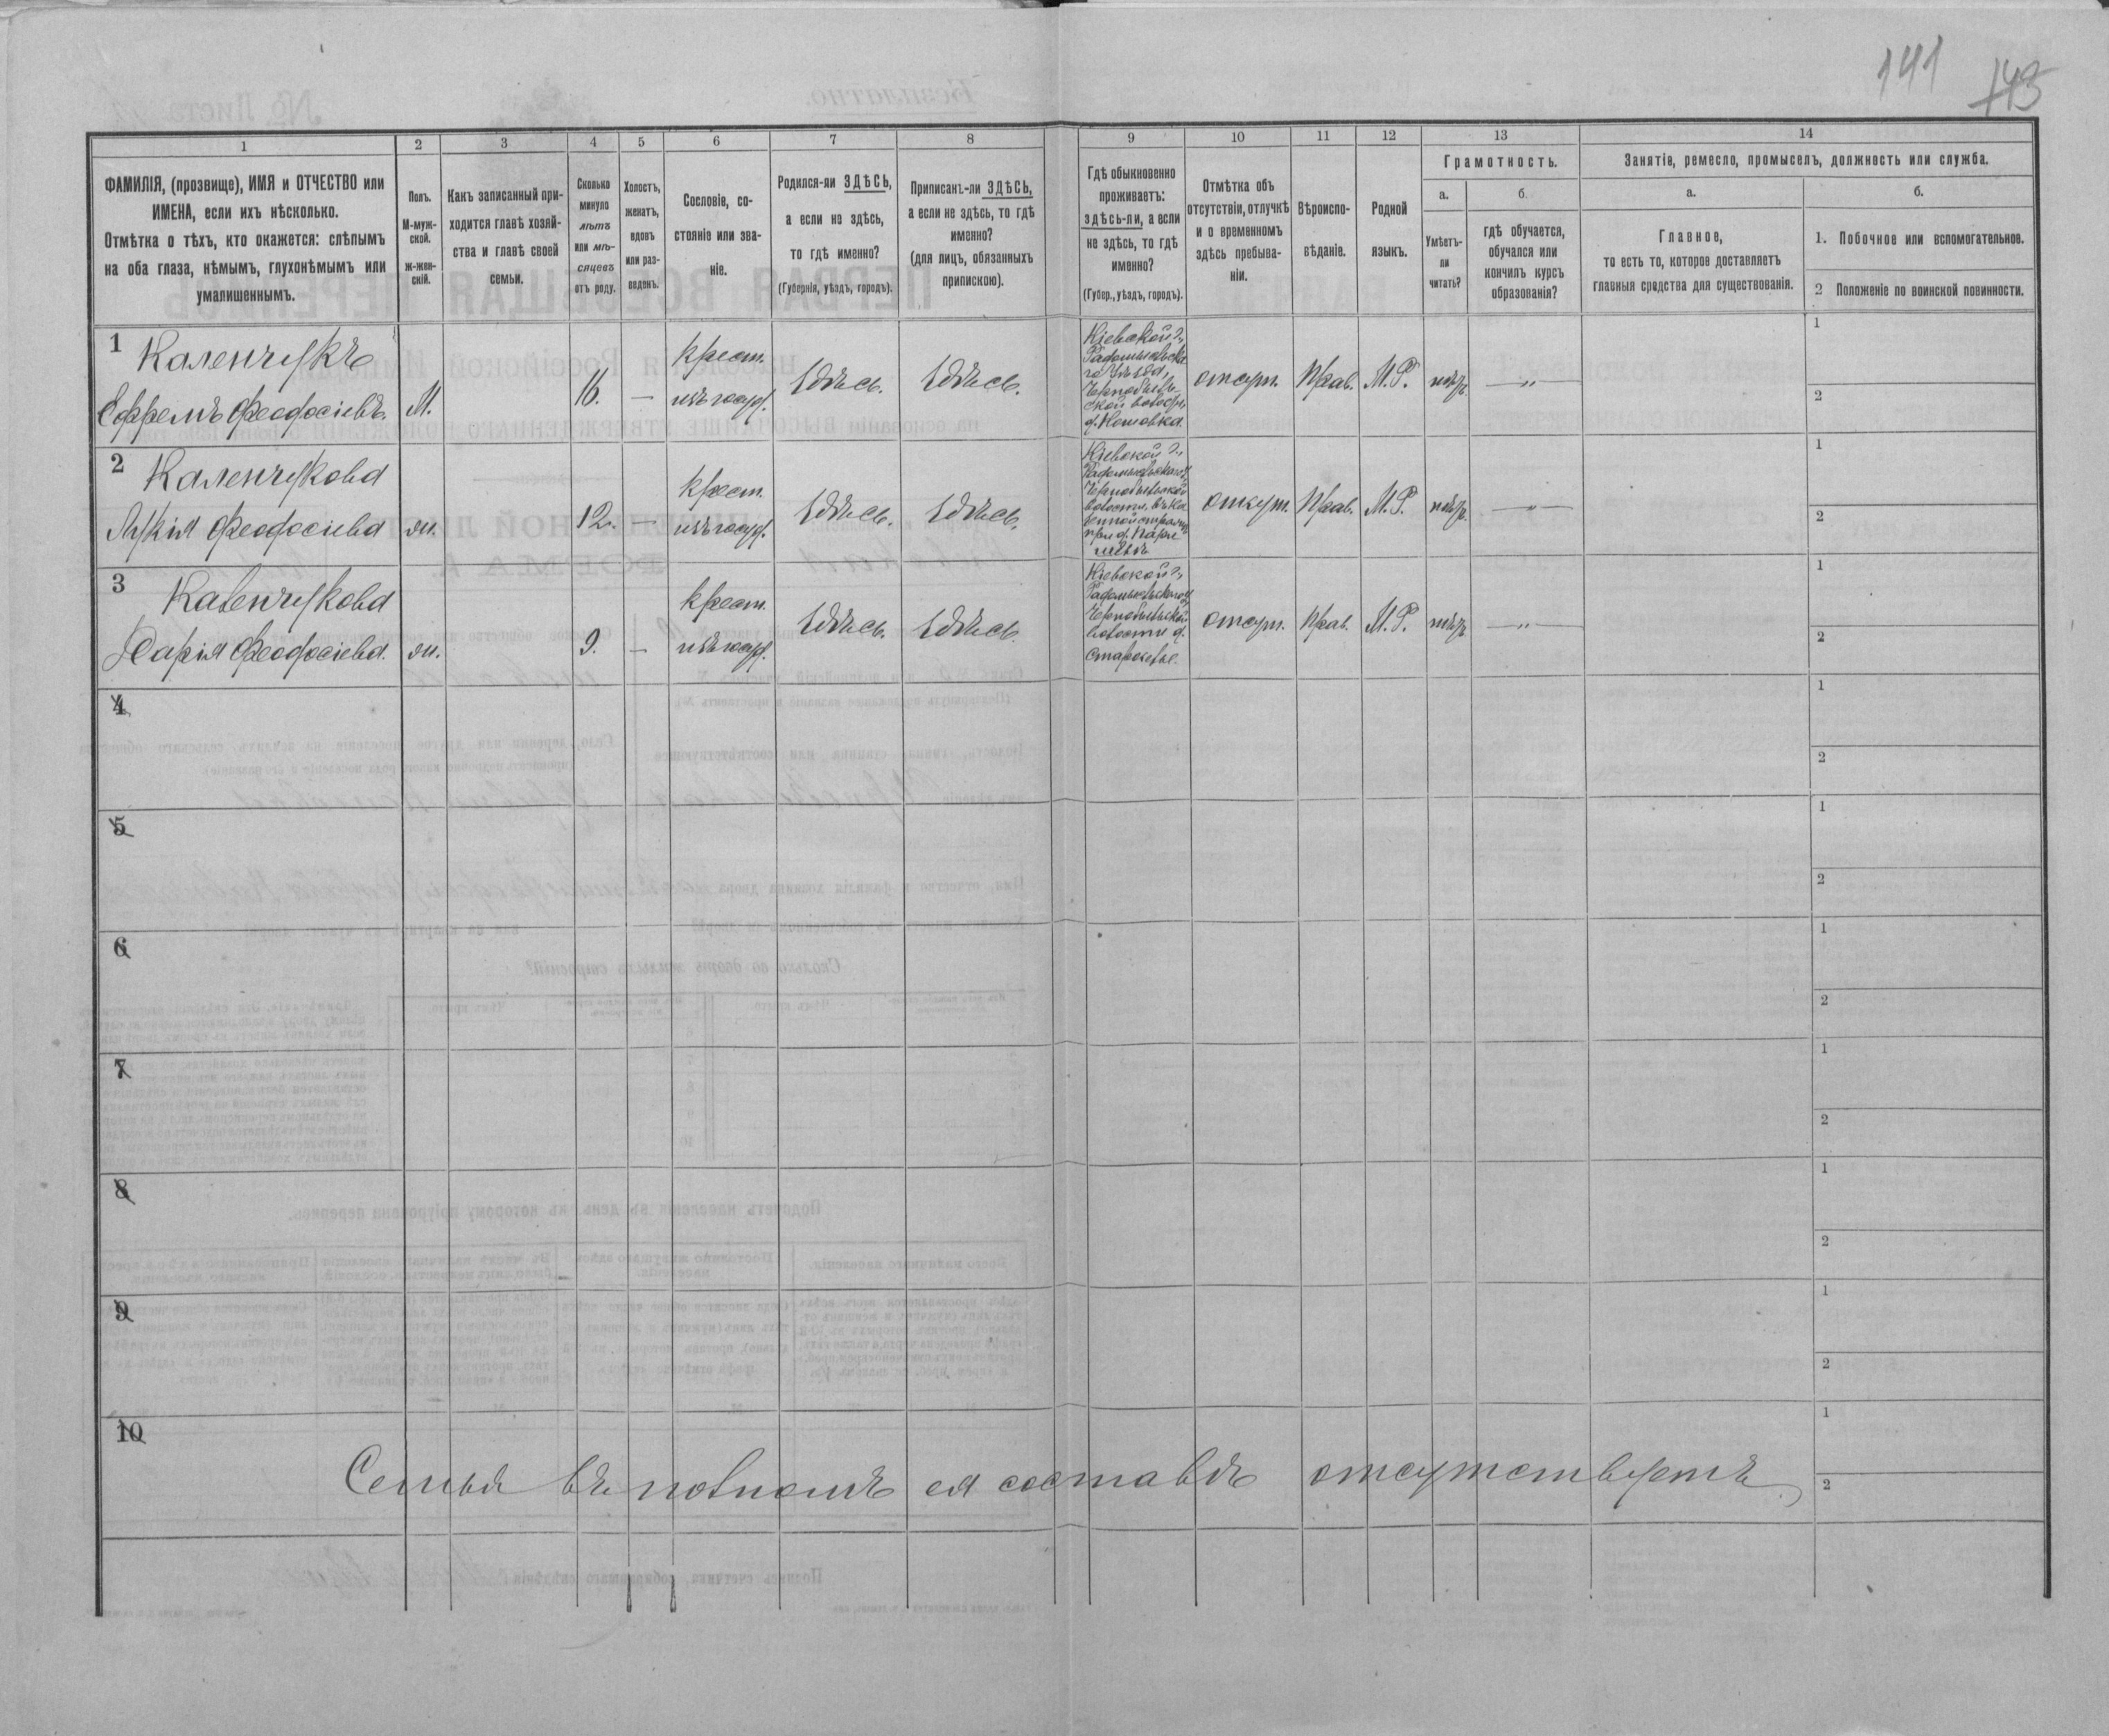 141
143
1
2
3
4
5
6
7
8
9
10
11
12
13
14
ФАМИЛІЯ, (прозвище), ИМЯ и ОТЧЕСТВО или
ИМЕНА, если ихъ нѣсколько.
Отмѣтка о тѣхъ, кто окажется: слѣпымъ
на оба глаза, нѣмымъ, глухонѣмымъ или
умалишеннымъ.
Полъ.
М-муж-
ской.
ж-жен-
скій.
Какъ записанный при-
ходится главѣ хозяй-
ства и главѣ своей
семьи.
Сколько
минуло
лѣтъ
или мѣ-
сяцевъ
отъ роду.
Холостъ,
женатъ,
вдовъ
или раз-
веденъ.
Сословіе, со-
стояніе или зва-
ніе.
Родился-ли ЗДѢСЬ,
а если не здѣсь,
то гдѣ именно?
(Губернія, уѣздъ, городъ).
Приписанъ-ли ЗДѢСЬ,
а если не здѣсь, то гдѣ
именно?
(для лицъ, обязанныхъ
припискою).
Гдѣ обыкновенно
проживаетъ:
здѣсь-ли, а если
не здѣсь, то гдѣ
именно?
(Губер., уѣздъ, городъ).
Отмѣтка объ
отсутствіи, отлучкѣ
и о временномъ
здѣсь пребыва-
ніи.
Вѣроиспо-
вѣданіе.
Родной
языкъ.
Грамотность.
а.
Умѣетъ-
ли
читать?
б.
гдѣ обучается,
обучался или
кончилъ курсъ
образованія?
Занятіе, ремесло, промыселъ, должность или служба.
а.
Главное,
то есть то, которое доставляетъ
главныя средства для существованія.
б.
1. Побочное или вспомогательное.
2 Положеніе по воинской повинности.
1 Каленчукъ
Ефремъ Феодосіевъ.
М.
16.
—
крест.
изъ госуд.
Здѣсь.
Здѣсь.
Кіевской г.,
Радомысльска
го уѣзда,
Чернобыль-
ской волости,
д. Коповка
отсут.
Прав.
М. Р.
нѣтъ
— „ —
1
2
2 Каленчукова
Лукія Феодосіева
ж.
12.
—
крест.
изъ госуд.
Здѣсь.
Здѣсь.
Кіевской г.,
Радомысльскаго у.
Чернобыльской
волости, въ ка
при д.
отсут.
Прав.
М. Р.
нѣтъ
— „ —
1
2
3 Каленчукова
Дарія Феодосіева.
ж.
9.
—
крест.
изъ госуд.
Здѣсь.
Здѣсь.
Кіевской г.,
Радомысльскаго у.
Чернобыльской
волости д.
Староселье.
отсут.
Прав.
М. Р.
нѣтъ
— „ —
1
2
4
1
2
5
1
2
6
1
2
7
1
2
8
1
2
9
1
2
10
1
2
Семья въ полномъ ея составѣ отсутствуетъ